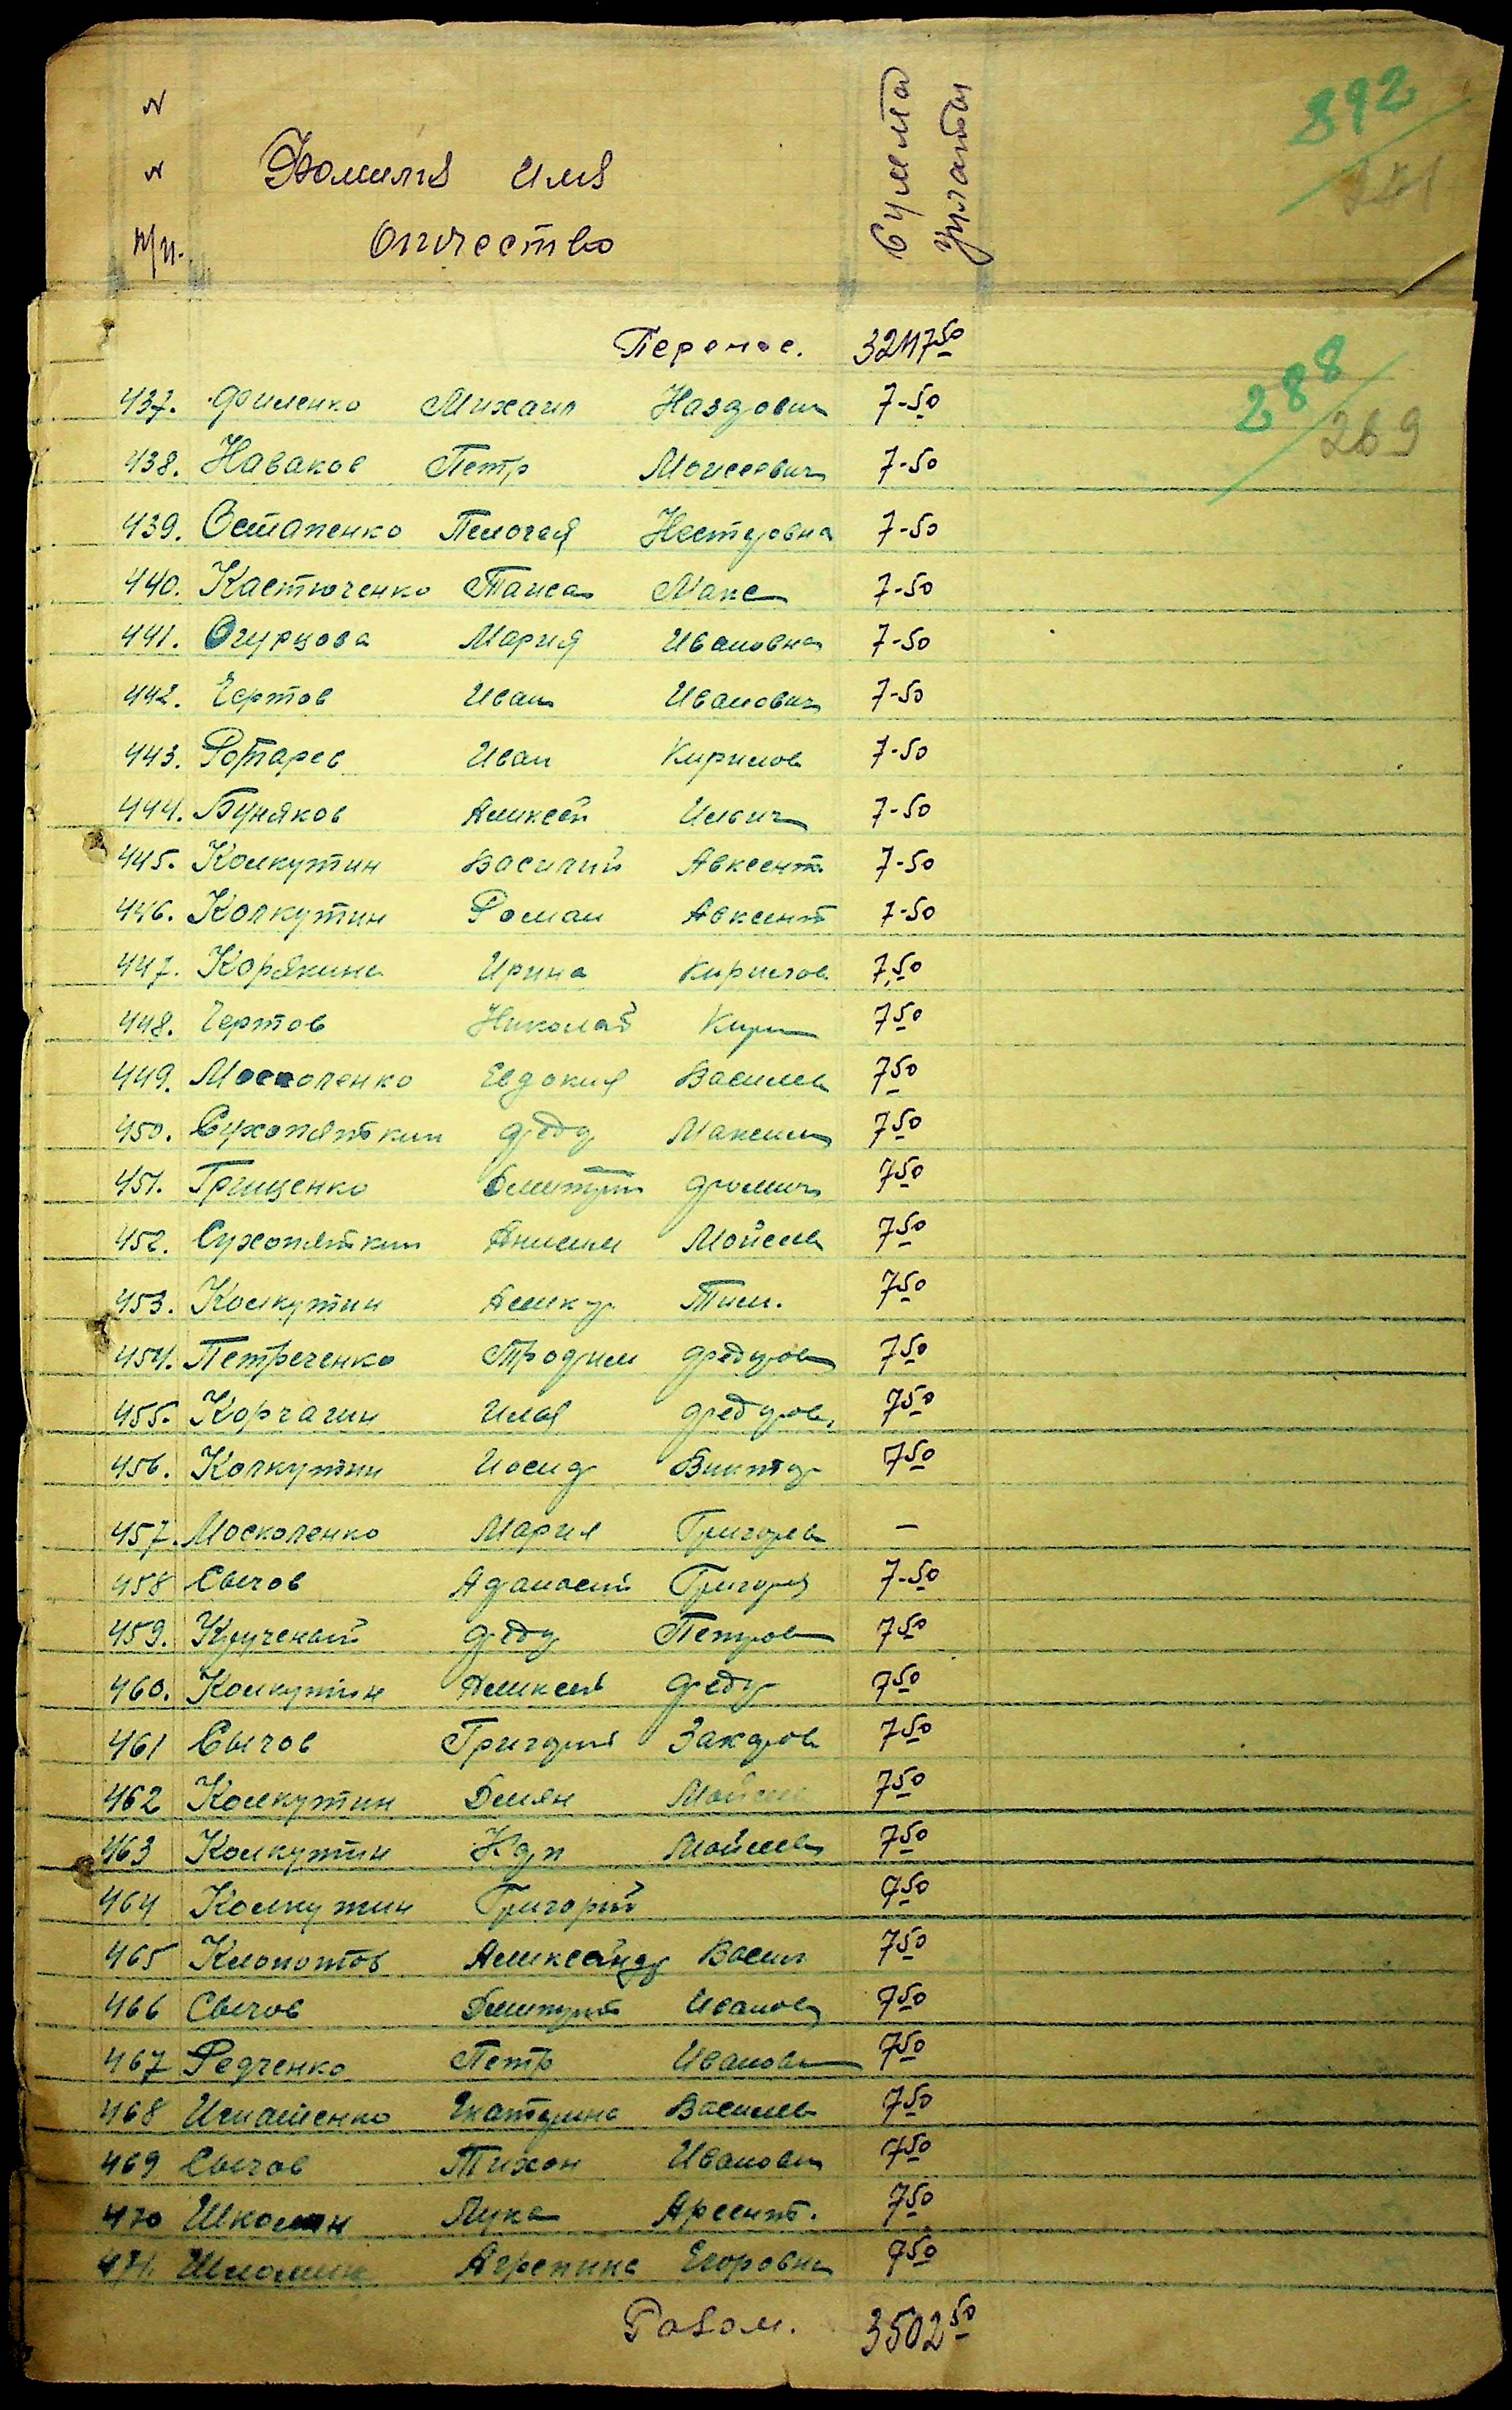 N
N
п/п.
Фамилия имя
Отчество
Сумма
уплаты
892
288
269
Перенос. 3247 50
437. Филенко Михаил 7-50
438. Наваков Петр Моисеевич 7-50
439. Остапенко Пелогея Нестеровна 7-50
440. Кастюченко Таиса Макс 7-50
441. Огурцова Мария Ивановна 7-50
442. Чертов Иван Иванович 7-50
443. Ротарев Иван Кирилов 7-50
444. Буняков Аликсей Илвич 7-50
445. Колкутин Василий Авксент. 7-50
446. Колкутин Роман Авксент 7-50
447. Корякина Ирина Кирилов 7,50
448. Чертов Николай Кирил 7 50
449. Москоленко Евдокия Василев 7 50
450. Сухопяткин Федор Максим 7 50
451. Грищенко Дмитрий Фомич 7 50
452. Сухопяткин Анисим Мойсеев 7 50
453. Колкутин Тим. 7 50
454. Петреченко Трофим Федоров 7 50
455. Корчагин Илья Федоров 7 50
456. Колкутин Иосиф Виктор 7 50
457. Москоленко Мария Григорев —
458 Сычов Афанасий Григорев 7-50
459. Кручекой Федор Петров 7 50
460. Колкутин Аликсей Федор 7 50
461 Сычов Григорий Захаров 7 50
462 Колкутин Демян Мойсеев 7 50
463 Колкутин Мойсеев 7 50
464 Колкутин Григорий 7 50
465 Клопотов Аликсандр Васил 7 50
466 Сычов Дмитрий Иванов 7 50
467 Редченко Петр Иванов 7 50
468 Игнатенко Екатерина Василев 7 50
469 Сычов Тихон Иванович 7 50
470 Школин Лука Арсент. 7 50
471. Агрепина Егоровна 7 50
Разом. 3502 50